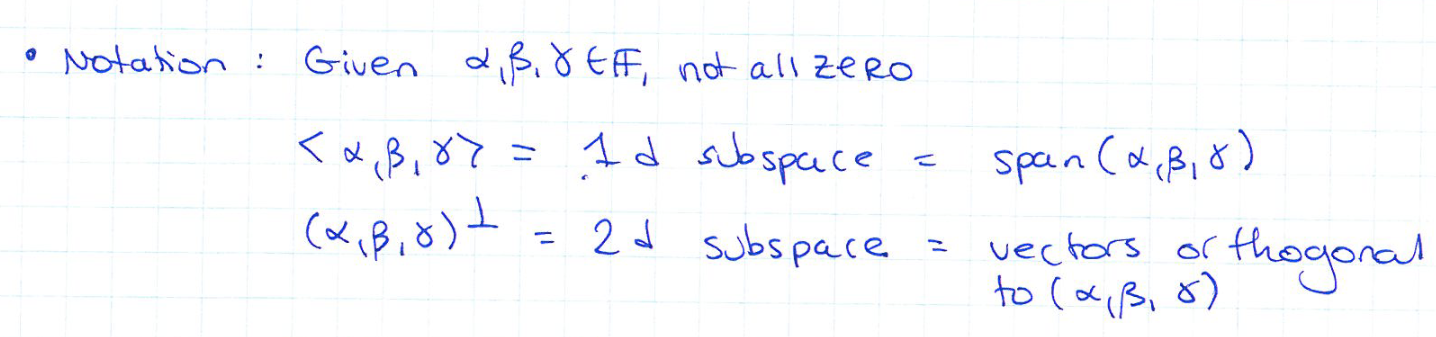 • Notation : Given α, β, γ ∈ 𝔽, not all zero
<α, β, γ> = 1d subspace = span(α, β, γ)
(α, β, γ)⊥ = 2d subspace = vectors orthogonal
to (α, β, γ)